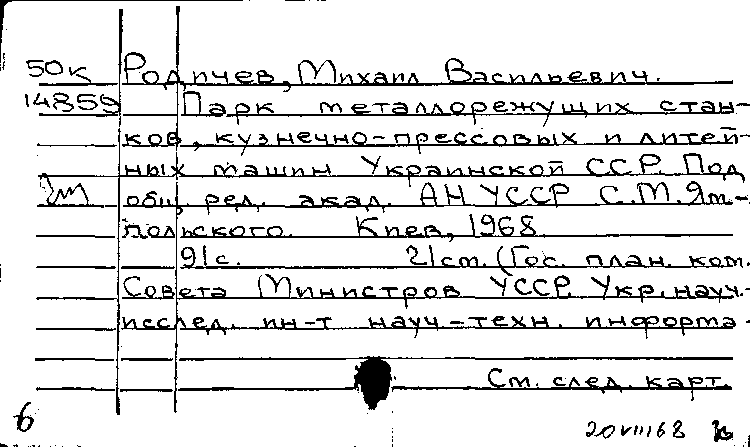 50к Родичев, Михаил Васильевич.
14859 Парк металлорежущих стан-
ков, кузнечно-прессовых и литей-
ных машин Украинской ССР. Под
общ. ред. акад. АН УССР С.М. Ям-
польского. Киев, 1968.
91с. 21см. (Гос. план. ком.
Совета Министров УССР. Укр. науч.-
исслед. ин-т науч-техн. информа-
См. след. карт.
6
20 VIII 68